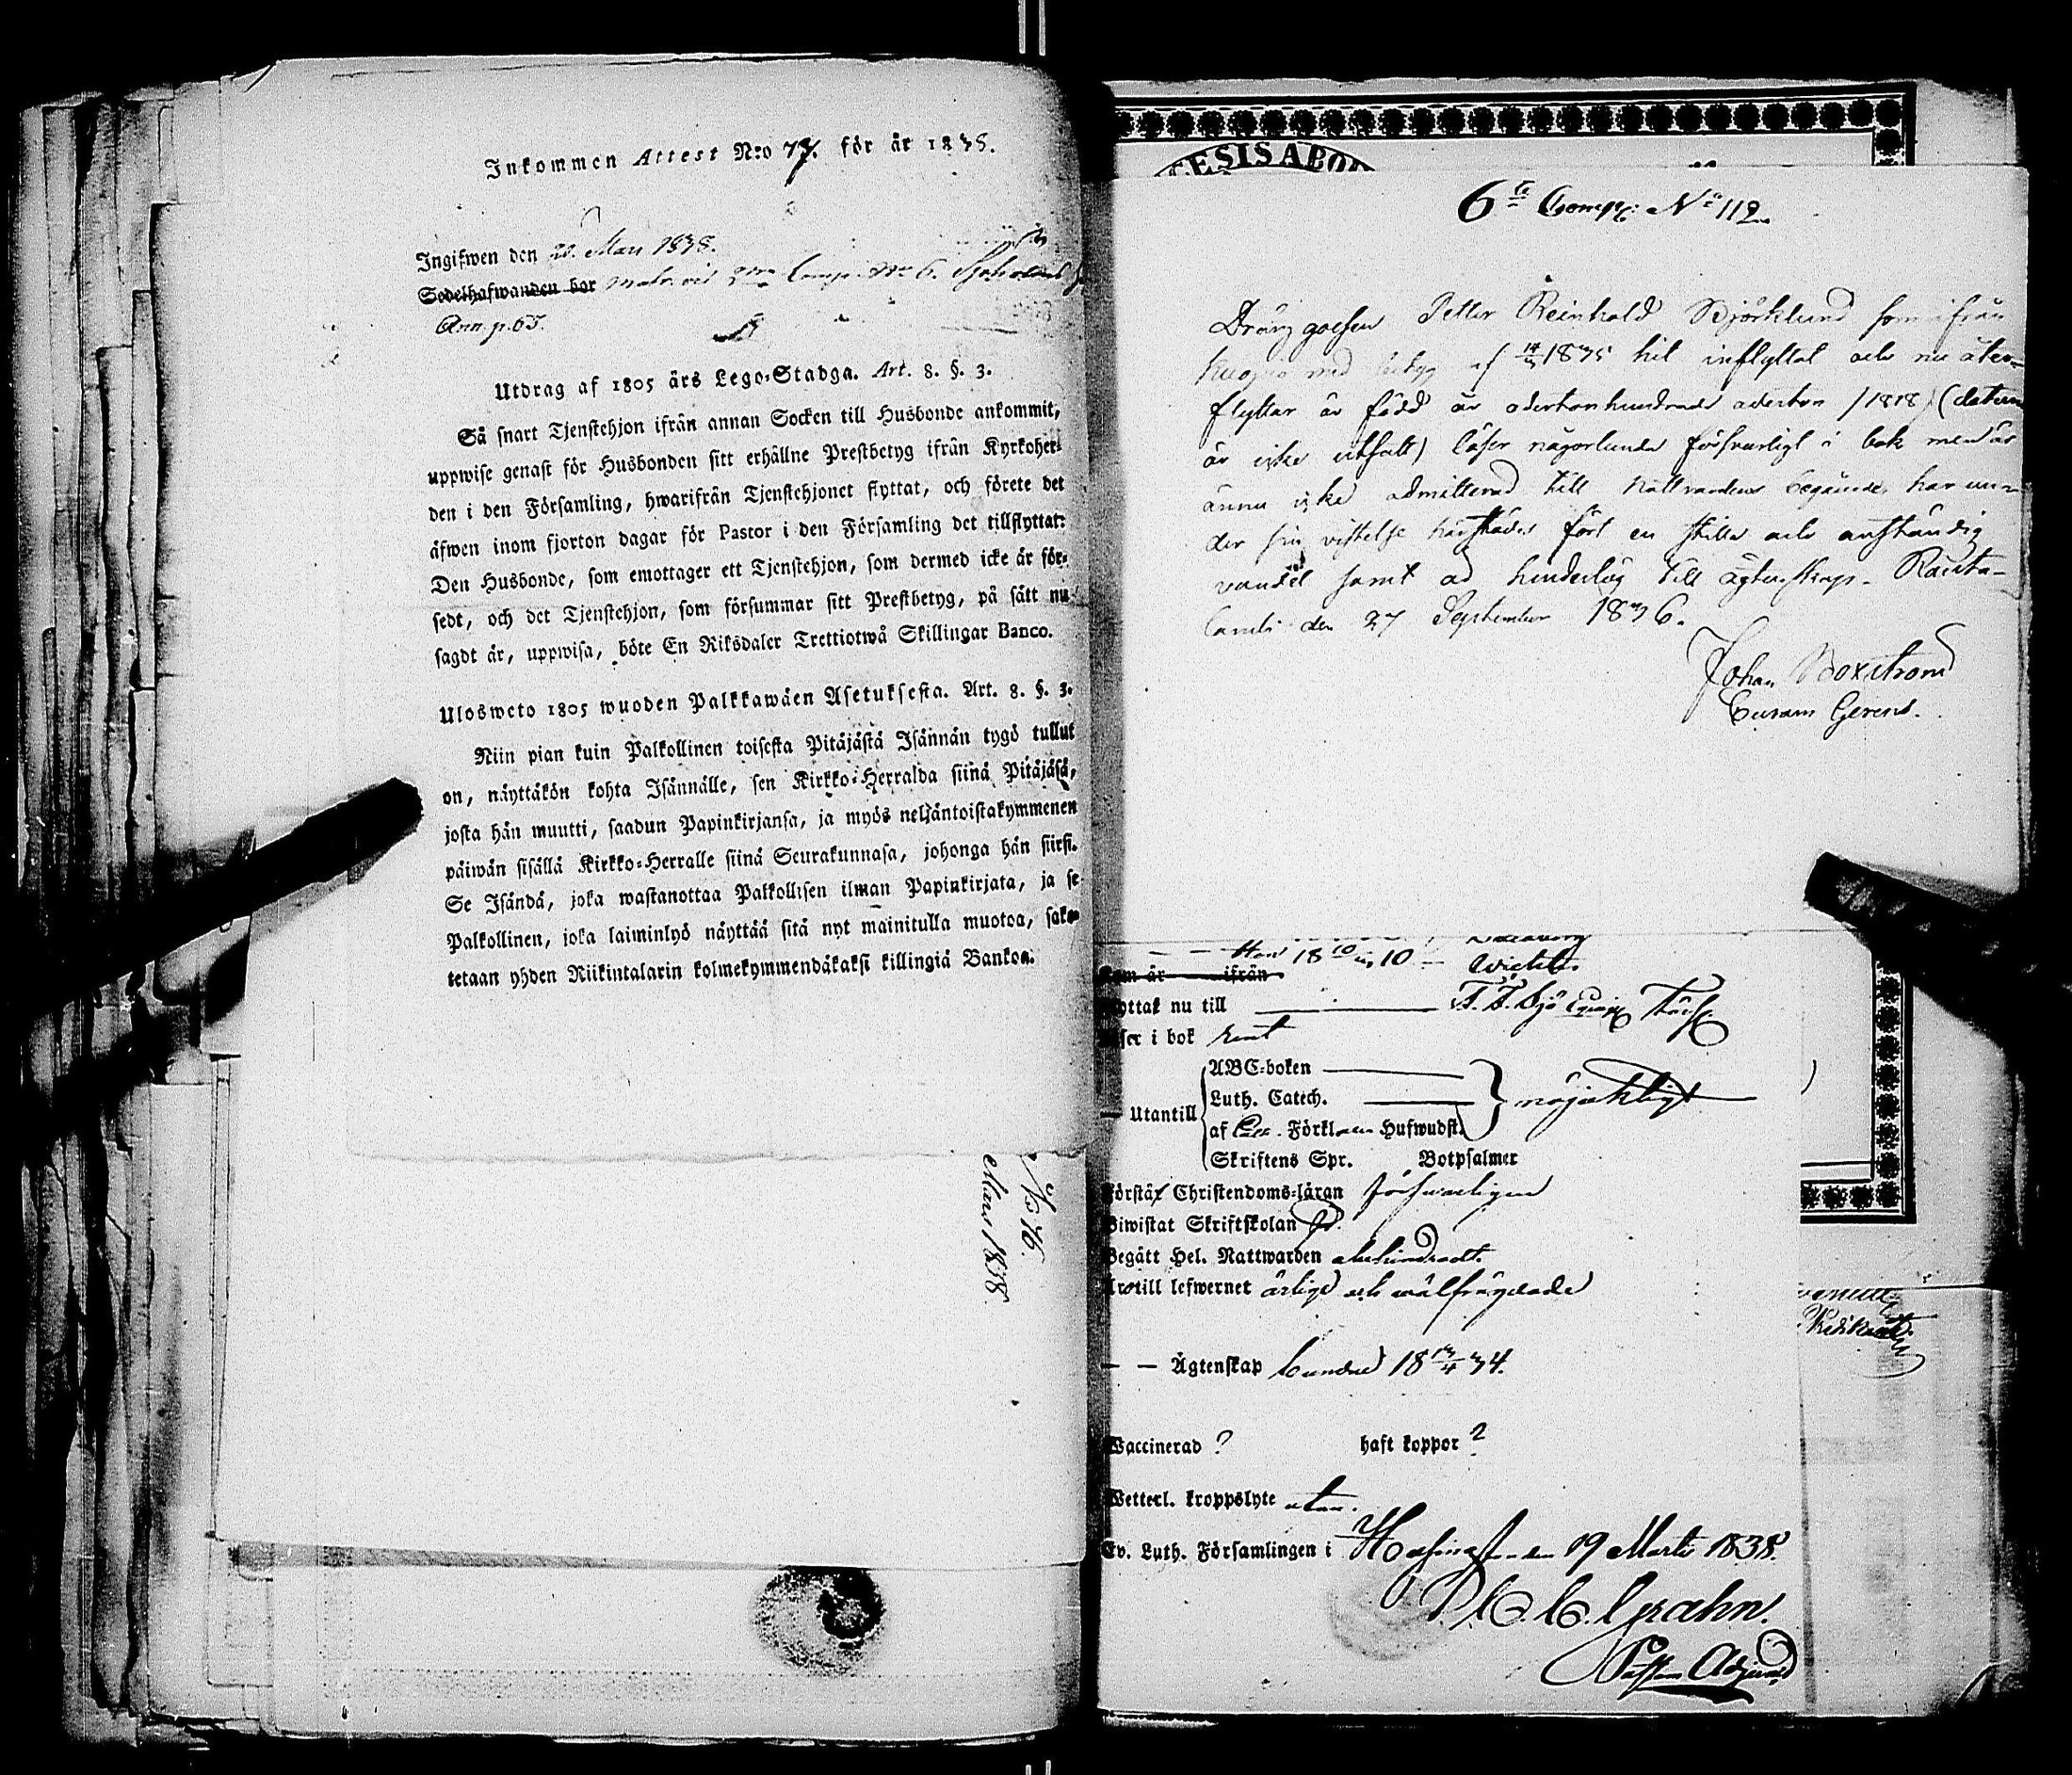 Inkommen Attest N:o 77. för år 1838.
Ingifwen den 20. Mars 1838.
Sedelhafwanden bor Comp. No 6.
Ann. p. 63.
Utdrag af 1805 års Lego-Stadga. Art. 8. §. 3.
Så snart Tjenstehjon ifrån annan Socken till Husbonde ankommit,
uppwise genast för Husbonden sitt erhållne Prestbetyg ifrån Kyrkoher-
den i den Församling, hwarifrån Tjenstehjonet flyttat, och förete det
äfwen inom fjorton dagar för Pastor i den Församling det tillflyttat:
Den Husbonde, som emottager ett Tjenstehjon, som dermed icke är för-
sedt, och det Tjenstehjon, som försummar sitt Prestbetyg, på sätt nu
sagdt är, uppwisa, böte En Riksdaler Trettiotwå Skillingar Banco.
Ulosweto 1805 wuoden Palkkawäen Asetuksesta. Art. 8. §. 3.
Niin pian kuin Palkollinen toisesta Pitäjästä Isännän tygö tullut
on, näyttäkön kohta Isännälle, sen Kirkko-Herralda siinä Pitäjäsä,
josta hän muutti, saadun Papinkirjansa, ja myös neljäntoistakymmenen
päiwän sisällä Kirkko-Herralle siinä Seurakunnasa, johonga hän siirsi.
Se Isändä, joka wastanottaa Palkollisen ilman Papinkirjata, ja se
Palkollinen, joka laiminlyö näyttää sitä nyt mainitulla muotoa, sako-
tetaan yhden Riikintalarin kolmekymmendäkaksi killingiä Bankoa.
No 76.
Mars 1838.
CESIS ABO
6te Comp: No 112
Dränggossen Petter Reinhold Björklund som ifrån
med betyg af 14/3 1835 hit inflyttat och nu åter-
flyttar är född år adertonhundrade aderton /1818/ (datum
är icke utsatt) läser någorlunda försvarligt i bok men är
ännu icke admitterad till Nattvardens begående, har un-
der sin vistelse härstädes fört en stilla och anständig
vandel samt är hinderlös till ägtenskap. Rauta-
lambi den 27 September 1836.
Johan Boxström
Curam Gerens.
18 10 Wichtis
Kom år ifrån
flyttat nu till
Läser i bok rent
Utantill
ABC-boken
Luth. Catech. nöjaktligt
af Förkl. Hufwudst.
Skriftens Spr. Botpsalmer
Förstår Christendoms-läran försvarligen
Biwistat Skriftskolan
Begått Hel. Nattwarden obehindradt.
Är till lefwernet ärlige och wälfrägdade
— — Ägtenskap 18 34.
Waccinerad ? haft koppor ?
Wetterl. kroppslyte utan.
Ev. Luth. Församlingen i Helsingfors den 19 Martii 1838.
C. Grahn.
Past. Adjunct